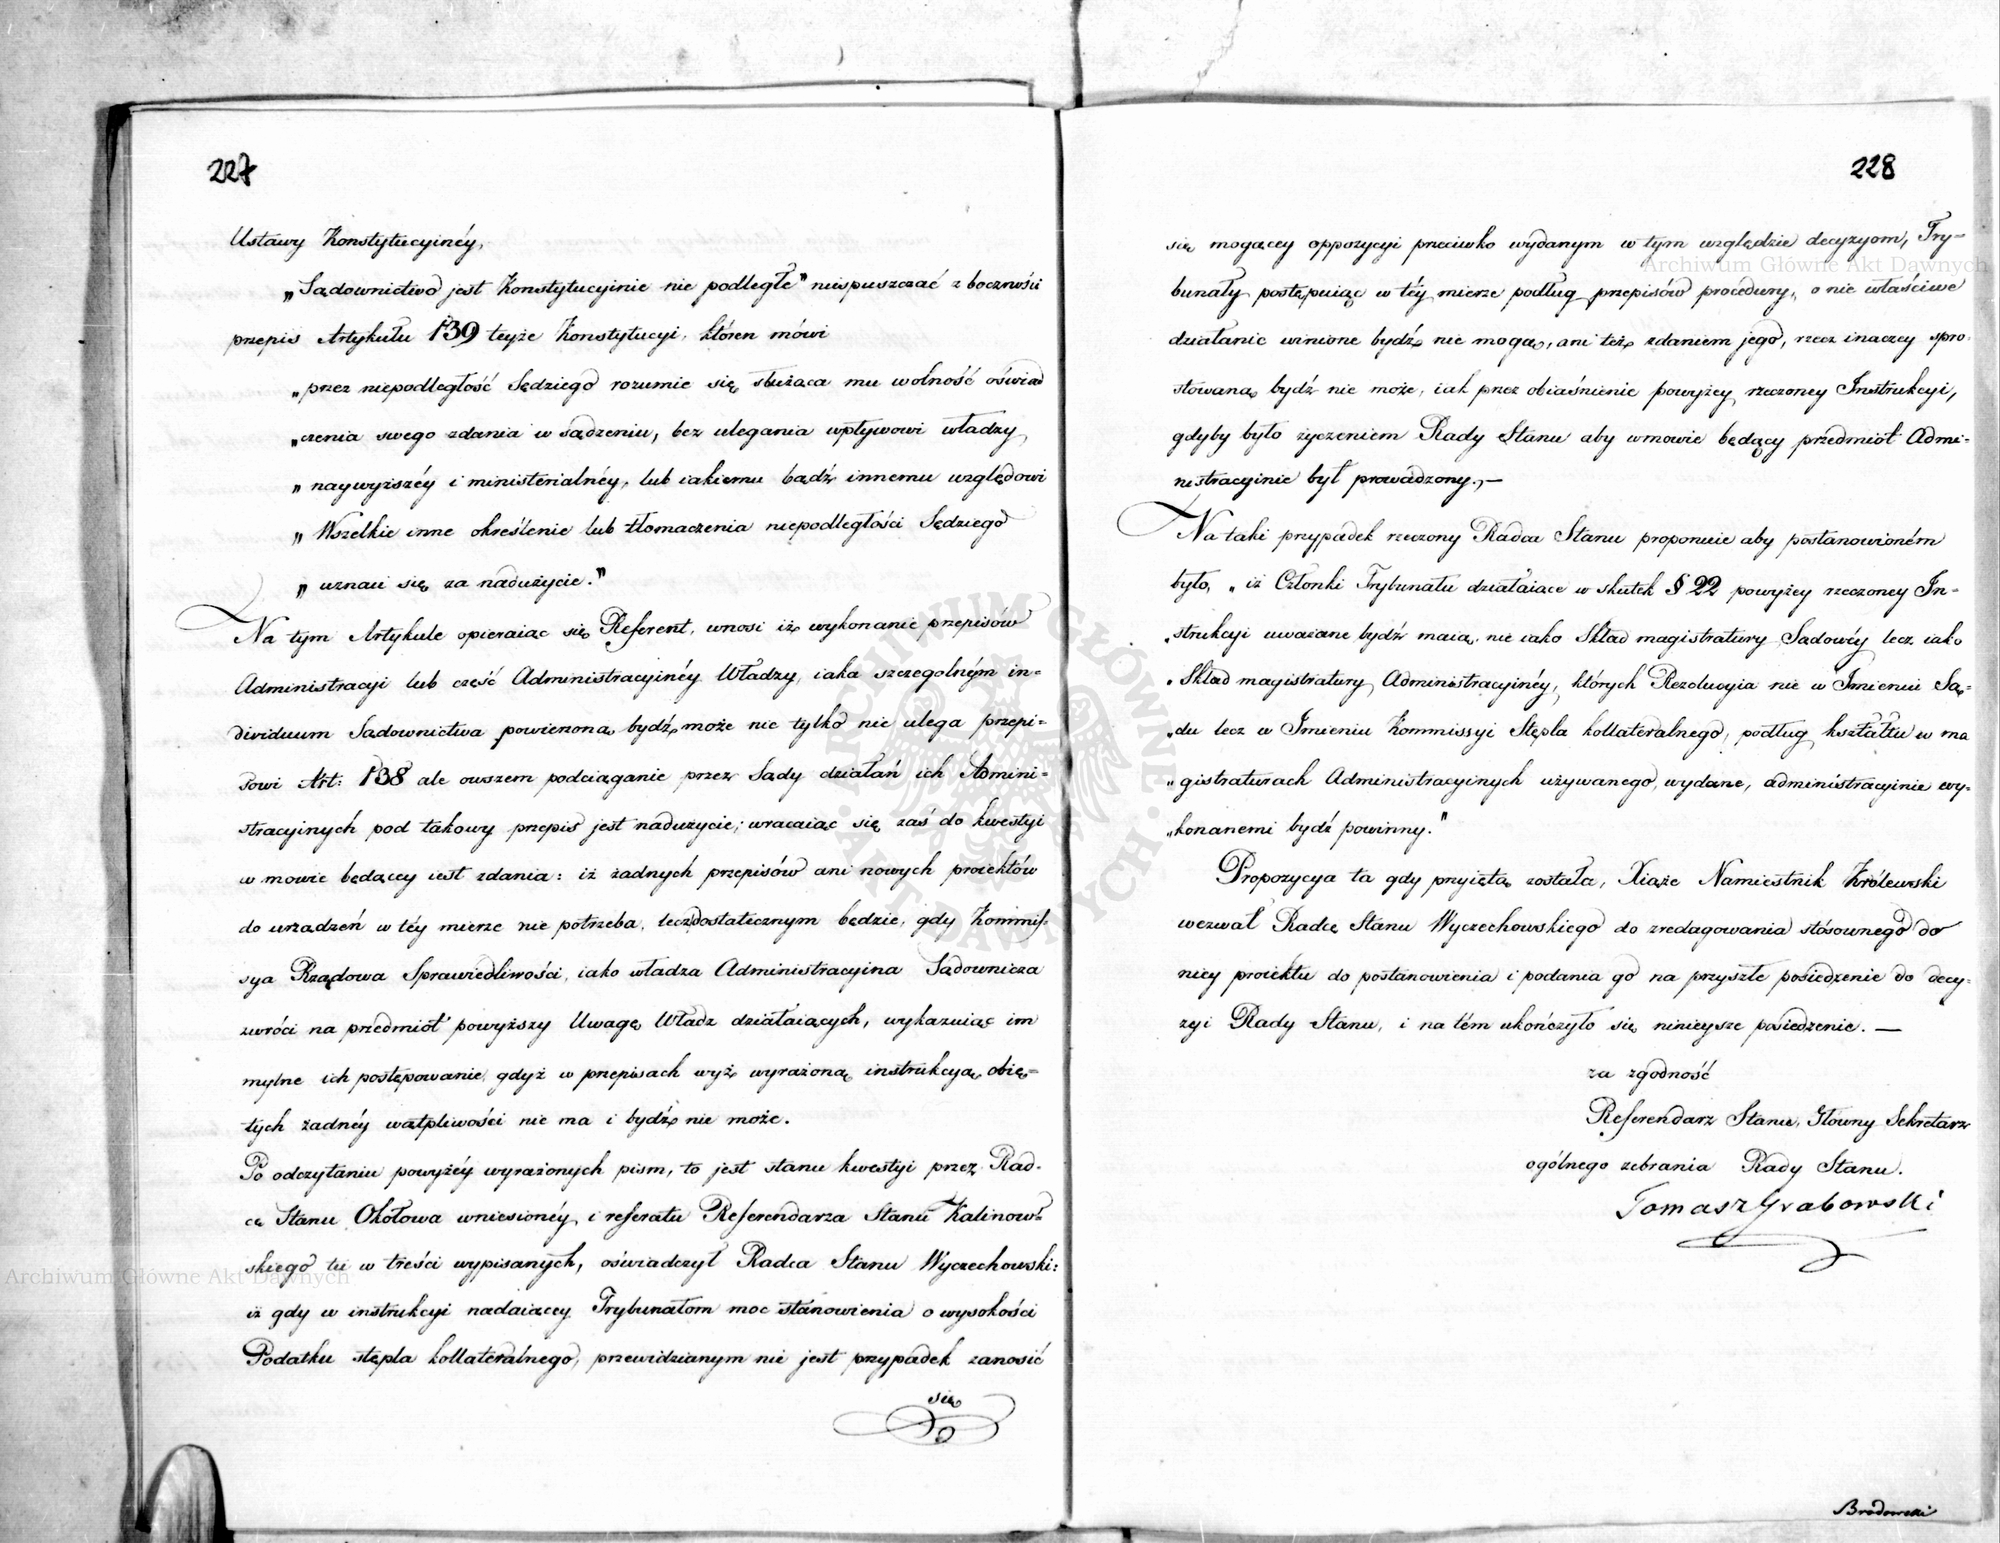 227
Ustawy Konstytucyinéy,
„Sądownictwo jest Konstytucyinie nie podległe” niespuszczać z boczności
przepis Artykułu 139 teyże Konstytucyi, któren mówi
„przez niepodległość Sędziego rozumie się służąca mu wolność oświad
„czenia swego zdania w sądzeniu, bez ulegania wpływowi władzy
„naywyższéy i ministerialnéy, lub iakiemu bądź innemu względowi
„Wszelkie inne określenie lub tłomaczenia niepodległości Sędziego
„uznaie się za nadużycie.”
Na tym Artykule opieraiąc się Referent, wnosi iż wykonanie przepisów
Administracyi lub część Administracyinéy Władzy, iaka szczególnym in-
dividuum Sądownictwa powierzoną bydź może nie tylko nie ulega przepi-
sowi Art: 138 ale owszem podciąganie przez Sądy działań ich Admini-
stracyinych pod takowy przepis jest nadużycie; wracaiąc się zaś do kwestyi
w mowie będącey iest zdania: iż żadnych przepisów ani nowych proiektów
do urządzeń w téy mierze nie potrzeba, lecz dostatecznym będzie, gdy Kommis-
sya Rządowa Sprawiedliwości, iako władza Administracyina Sądownicza
zwróci na przedmiot powyższy Uwagę Władz działaiących, wykazuiąc im
mylne ich postępowanie, gdyż w przepisach wyż wyrażoną instrukcyą obię-
tych żadnéy wątpliwości nie ma i bydź nie może.
Po odczytaniu powyżéy wyrażonych pism, to jest stanu kwestyi przez Rad-
cę Stanu Okołowa wniesionéy i referatu Referendarza Stanu Kalinow-
skiego tu w treści wypisanych, oświadczył Radca Stanu Wyczechowski:
iż gdy w instrukcyi nadaiącey Trybunałom moc stanowienia o wysokości
Podatku stępla kollateralnego, przewidzianym nie jest przypadek zanosić
się
228
się mogącey oppozycyi przeciwko wydanym w tym względzie decyzyom, Try-
bunały postępuiąc w téy mierze podług przepisów procedury, o nie właściwe
działanie winione bydź nie mogą, ani też zdaniem jego, rzecz inaczey spro-
stowaną bydź nie może, iak przez obiaśnienie powyżey rzeczoney Instrukcyi,
gdyby było życzeniem Rady Stanu aby w mowie będący przedmiot Admi-
nistracyinie był prowadzony.—
Na taki przypadek rzeczony Radca Stanu proponuie aby postanowioném
było, „iż Członki Trybunału działaiące w skutek § 22 powyżey rzeczoney In-
„strukcyi uważane bydź maią, nie iako Skład magistratury Sądowéy lecz iako
„Skład magistratury Administracyinéy, których Rezolucyia nie w Imieniu Są-
„du lecz w Imieniu Kommissyi Stępla kollateralnego, podług kształtu w ma
„gistraturach Administracyinych używanego, wydane, administracyinie wy-
„konanemi bydź powinny.”
Propozycya ta gdy przyiętą została, Xiąże Namiestnik Królewski
wezwał Radcę Stanu Wyczechowskiego do zredagowania stósownego do
niey proiektu do postanowienia i podania go na przyszłe posiedzenie do decy-
zyi Rady Stanu, i na tém ukończyło się ninieysze posiedzenie. —
za zgodność
Referendarz Stanu, Główny Sekretarz
ogólnego zebrania Rady Stanu.
Tomasz Grabowski
Brodowski
Archiwum Główne Akt Dawnych
Archiwum Główne Akt Dawnych
ARCHIWUM GŁÓWNE AKT DAWNYCH